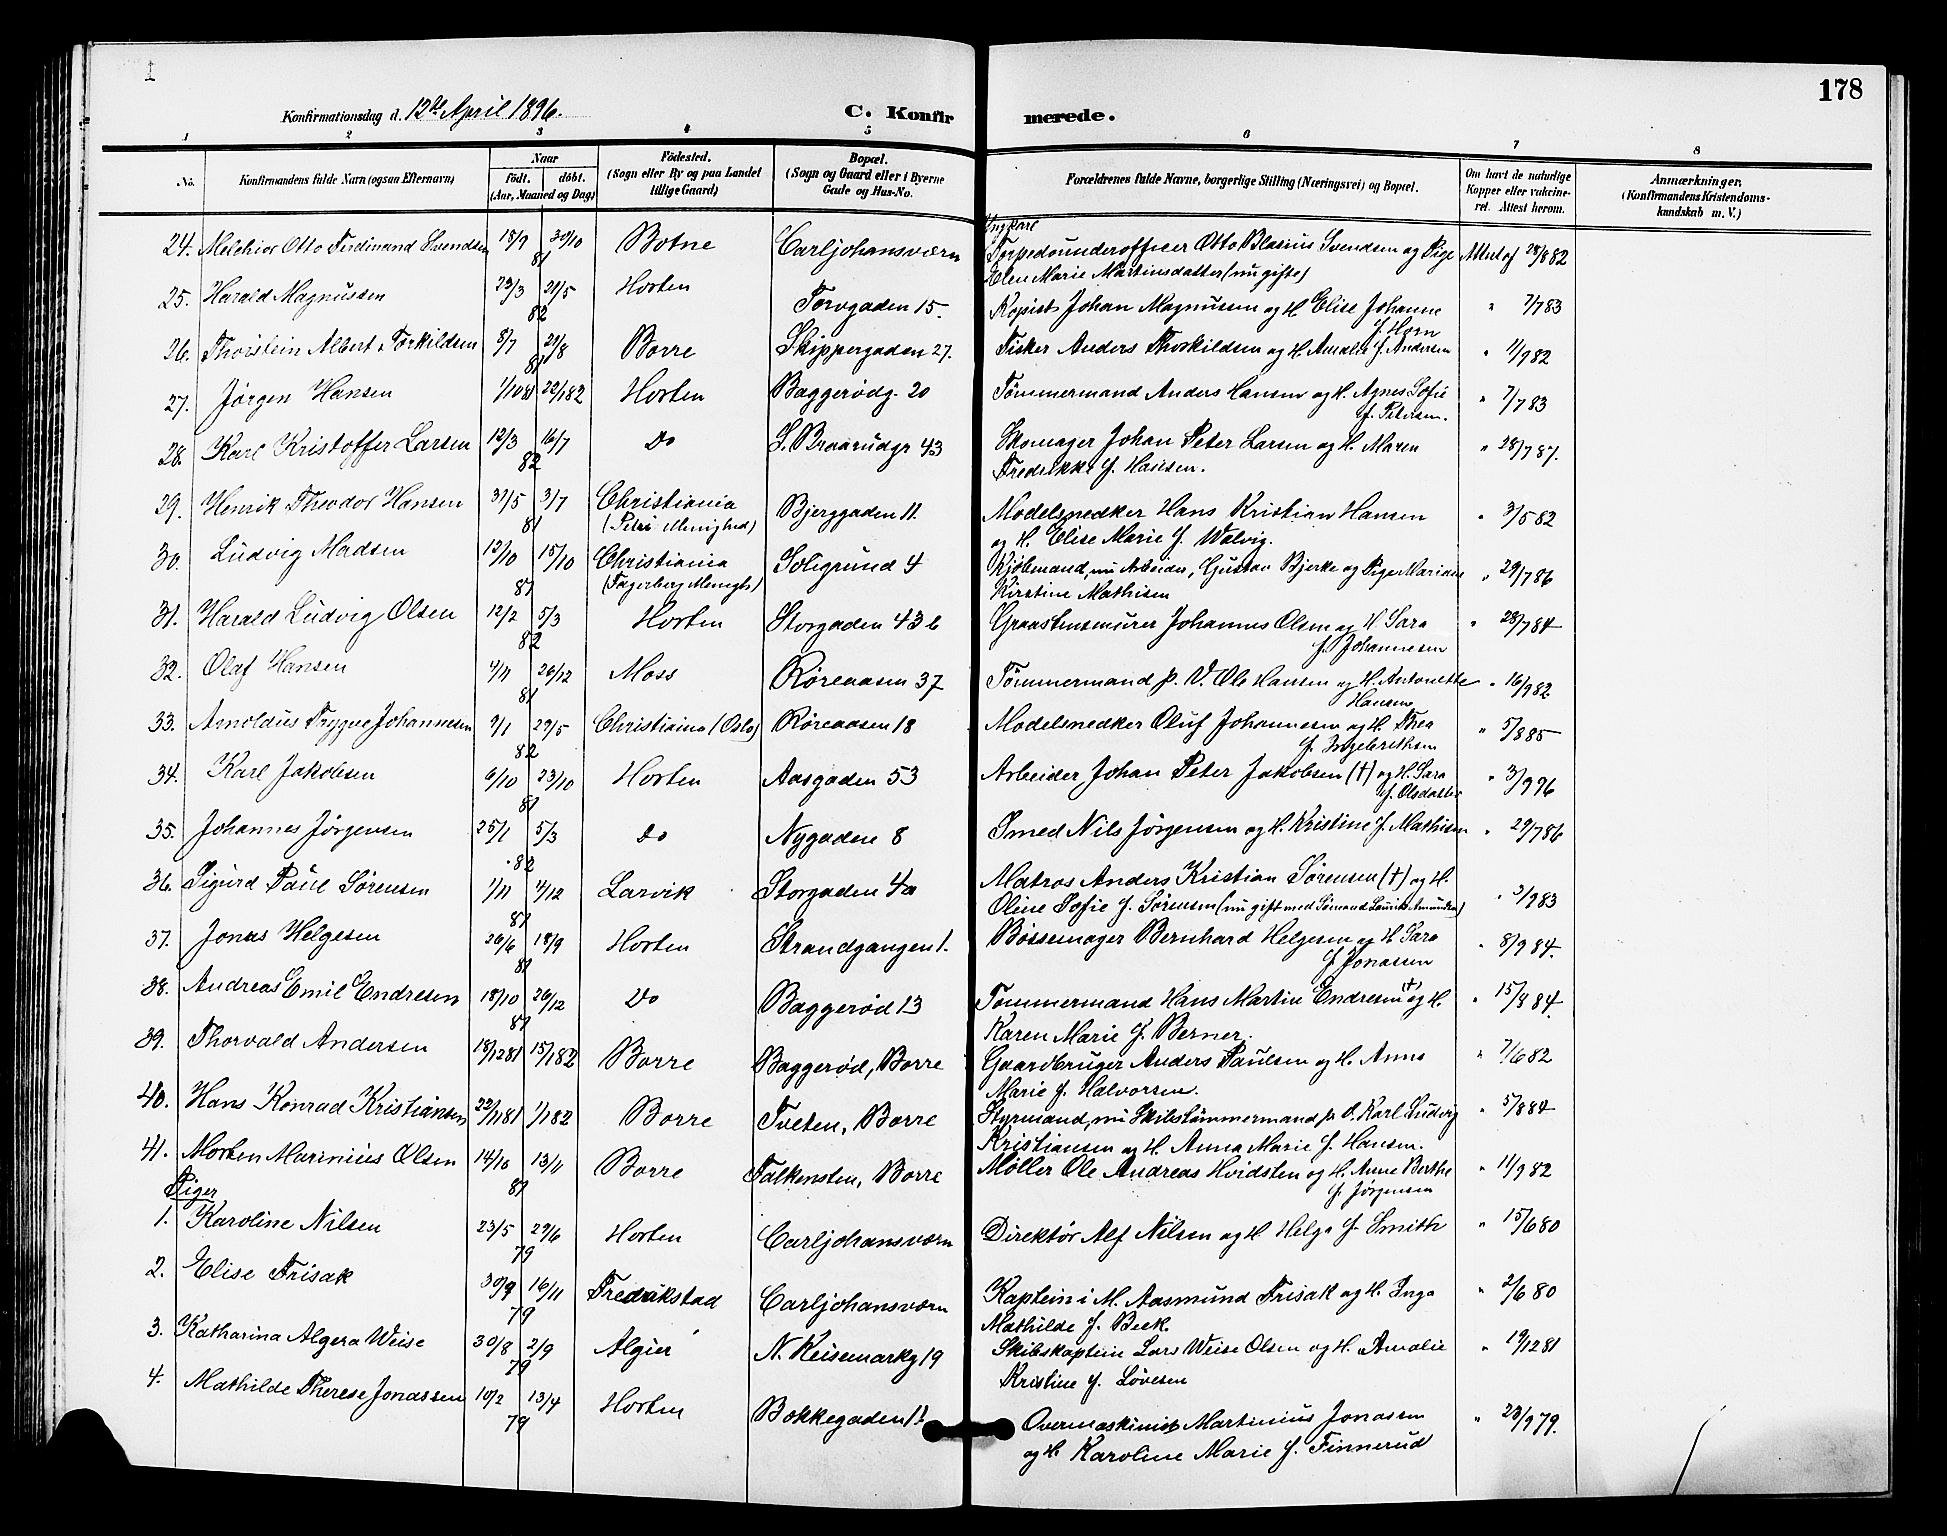 178
Konfirmationsdag d. 12te April 1896.
C. Konfirmerede.
1 2 3 4 5 6 7 8
No. Konfirmandens fulde Navn (ogsaa Efternavn) Naar født. døbt. (Aar, Maaned og Dag) Fødested. (Sogn eller By og paa Landet tillige Gaard) Bopæl. (Sogn og Gaard eller i Byerne Gade og Hus-No. Forældrenes fulde Navne, borgerlige Stilling (Næringsvei) og Bopæl. Om havt de naturlige Kopper eller vakcineret. Attest herom. Anmærkninger, (Konfirmandens Kristendomskundskab m. V.)
24. Melchior Otto Ferdinand Svendsen 18/9 30/10 81 Botne Carljohansværn Ungkarl Torpedounderofficer Otto Blasius Svendsen og Pige Attest af 28/8 82
Elen Marie Martinsdatter (nu gifte)
25. Harald Magnussen 23/3 21/5 82 Horten Torvgaden 15. Kopist Johan Magnussen og H. Elise Johanne f. Horn " 7/7 83
26. Thorstein Albert Torkildsen 8/7 21/8 81 Borre Skippergaden 27. Fisker Anders Thorkildsen og H. Amalie f. Andersen " 11/9 82
27. Jørgen Hansen 1/10 81 22/1 82 Horten Baggerødg. 20 Tømmermand Anders Hansen og H. Agnes Sofie f. Petersen. " 7/7 83
28. Karl Kristoffer Larsen 12/3 16/7 82 Do S. Braarudgr 43 Skomager Johan Peter Larsen og H. Maren " 28/7 87.
Fredrikke f. Hansen.
29. Henrik Theodor Hansen 31/5 3/7 81 Christiania (Petri Menighed) Bjerggaden 11. Modelsnedker Hans Kristian Hansen " 3/5 82
og H. Elise Marie f. Walvig.
30. Ludvig Madsen 12/10 15/10 81 Christiania (Fagerborg Menigh.) Soligrund 4 Kjøbmand, nu Arbeider, Gustav Bjerke og Pige " 29/7 86
Kirstine Mathisen
31. Harald Ludvig Olsen 12/2 5/3 82 Horten Storgaden 43 b Graastensmurer Johannes Olsen og H. Sara f. Johannesen " 28/7 84
32. Olaf Hansen 4/11 26/12 81 Moss Røreaasen 37 Tømmermand p. V. Ole Hansen og H. Antonette Hansen " 16/9 82
33. Arnoldus Trygve Johannesen 9/1 29/5 82 Christiania (Oslo) Røreaasen 18 Modelsnedker Oluf Johannesen og H. Thea f. Ingebrethsen " 5/8 85
34. Karl Jakobsen 6/10 23/10 81 Horten Aasgaden 53 Arbeider Johan Peter Jakobsen (†) og H. Sara f. Olsdatter " 3/9 96
35. Johannes Jørgensen 25/1 5/3 82 Do Nygaden 8 Smed Nils Jørgensen og H. Kristine f. Mathisen " 29/7 86
36. Sigurd Paul Sørensen 1/11 4/12 81 Larvik Storgaden 4a Matros Anders Kristian Sørensen (†) og H. " 3/9 83
Oline Sofie f. Sørensen (nu gift med Sømand Laurits Amundsen)
37. Jonas Helgesen 26/6 18/9 81 Horten Strandgangen 1. Bøssemager Bernhard Helgesen og H. Sara f. Jonassen " 8/9 84.
38. Andreas Emil Endresen 18/10 26/12 81 Do Baggerød 13 Tømmermand Hans Martin Endresen (†) og H. " 15/8 84.
Karen Marie f. Berner.
39. Thorvald Andersen 18/12 81 15/1 82 Borre Baggerød, Borre Gaardbruger Anders Paulsen og H. Anne " 7/6 82
Marie f. Halvorsen.
40. Hans Konrad Kristiansen 22/11 81 1/1 82 Borre Tveten, Borre Styrmand, nu Skibstømmermand p. O. Karl Ludvig " 5/8 84
Kristiansen og H. Anna Marie f. Hansen.
41. Morten Marinius Olsen 14/10 13/11 81 Borre Falkensten, Borre Møller Ole Andreas Hvidsten og H. Anne Berthe f. Jørgensen " 11/9 82
Piger
1. Karoline Nilsen 23/5 29/6 79 Horten Carljohansværn Direktør Alf Nilsen og H. Helga f. Smith " 15/6 80
2. Elise Frisak 30/9 16/11 79 Fredrikstad Carljohansværn Kaptein i M. Aasmund Frisak og H. Inga " 2/6 80
Mathilde f. Beck.
3. Katharina Algera Weise 30/8 2/9 79 Algier N. Keisemarkg 19 Skibskaptein Lars Weise Olsen og H. Amalie " 19/12 81
Kristine f. Løvesen
4. Mathilde Therese Jonassen 10/2 13/4 79 Horten Bokkegaden 11 Overmaskinist Martinius Jonassen " 23/9 79.
og H. Karoline Marie f. Finnerud